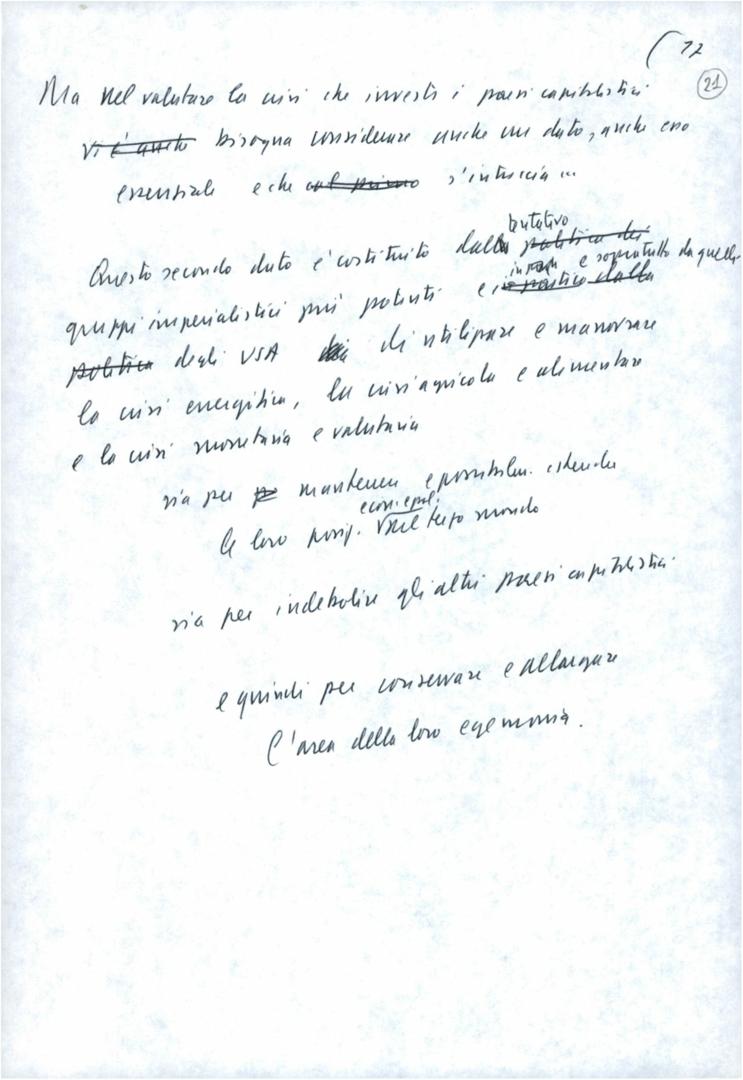 17
21
Ma nel valutare la crisi che investe i paesi capitalistici
vi è anche bisogna considerare anche un dato, anche esso
essenziale e che col primo s'intreccia
tentativo
Questo secondo dato è costituito dalla politica dei
e sopratutto da quelli
gruppi imperialistici più potenti e in pratica dalla
politica degli USA di utilizzare e manovrare
la crisi energetica, la crisi agricola e alimentare
e la crisi monetaria e valutaria
sia per mantenere e possibilm. estendere
econ. e pol.
le loro posiz. nel terzo mondo
sia per indebolire gli altri paesi capitalistici
e quindi per conservare e allargare
l'area della loro egemonia.